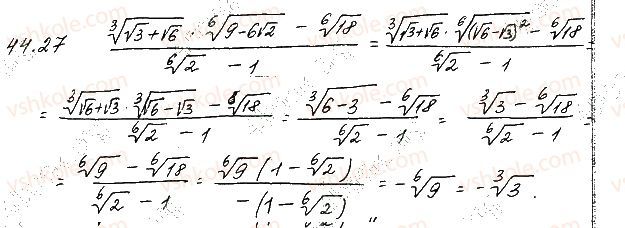 44.27 \frac{\sqrt[3]{\sqrt{3}+\sqrt{6}} \cdot \sqrt[6]{9-6\sqrt{2}} - \sqrt[6]{18}}{\sqrt[6]{2} - 1} = \frac{\sqrt[3]{\sqrt{3}+\sqrt{6}} \cdot \sqrt[6]{(\sqrt{6}-\sqrt{3})^2} - \sqrt[6]{18}}{\sqrt[6]{2} - 1} =
= \frac{\sqrt[3]{\sqrt{6}+\sqrt{3}} \cdot \sqrt[3]{\sqrt{6}-\sqrt{3}} - \sqrt[6]{18}}{\sqrt[6]{2} - 1} = \frac{\sqrt[3]{6-3} - \sqrt[6]{18}}{\sqrt[6]{2} - 1} = \frac{\sqrt[3]{3} - \sqrt[6]{18}}{\sqrt[6]{2} - 1} =
= \frac{\sqrt[6]{9} - \sqrt[6]{18}}{\sqrt[6]{2} - 1} = \frac{\sqrt[6]{9}(1 - \sqrt[6]{2})}{-(1 - \sqrt[6]{2})} = -\sqrt[6]{9} = -\sqrt[3]{3}.